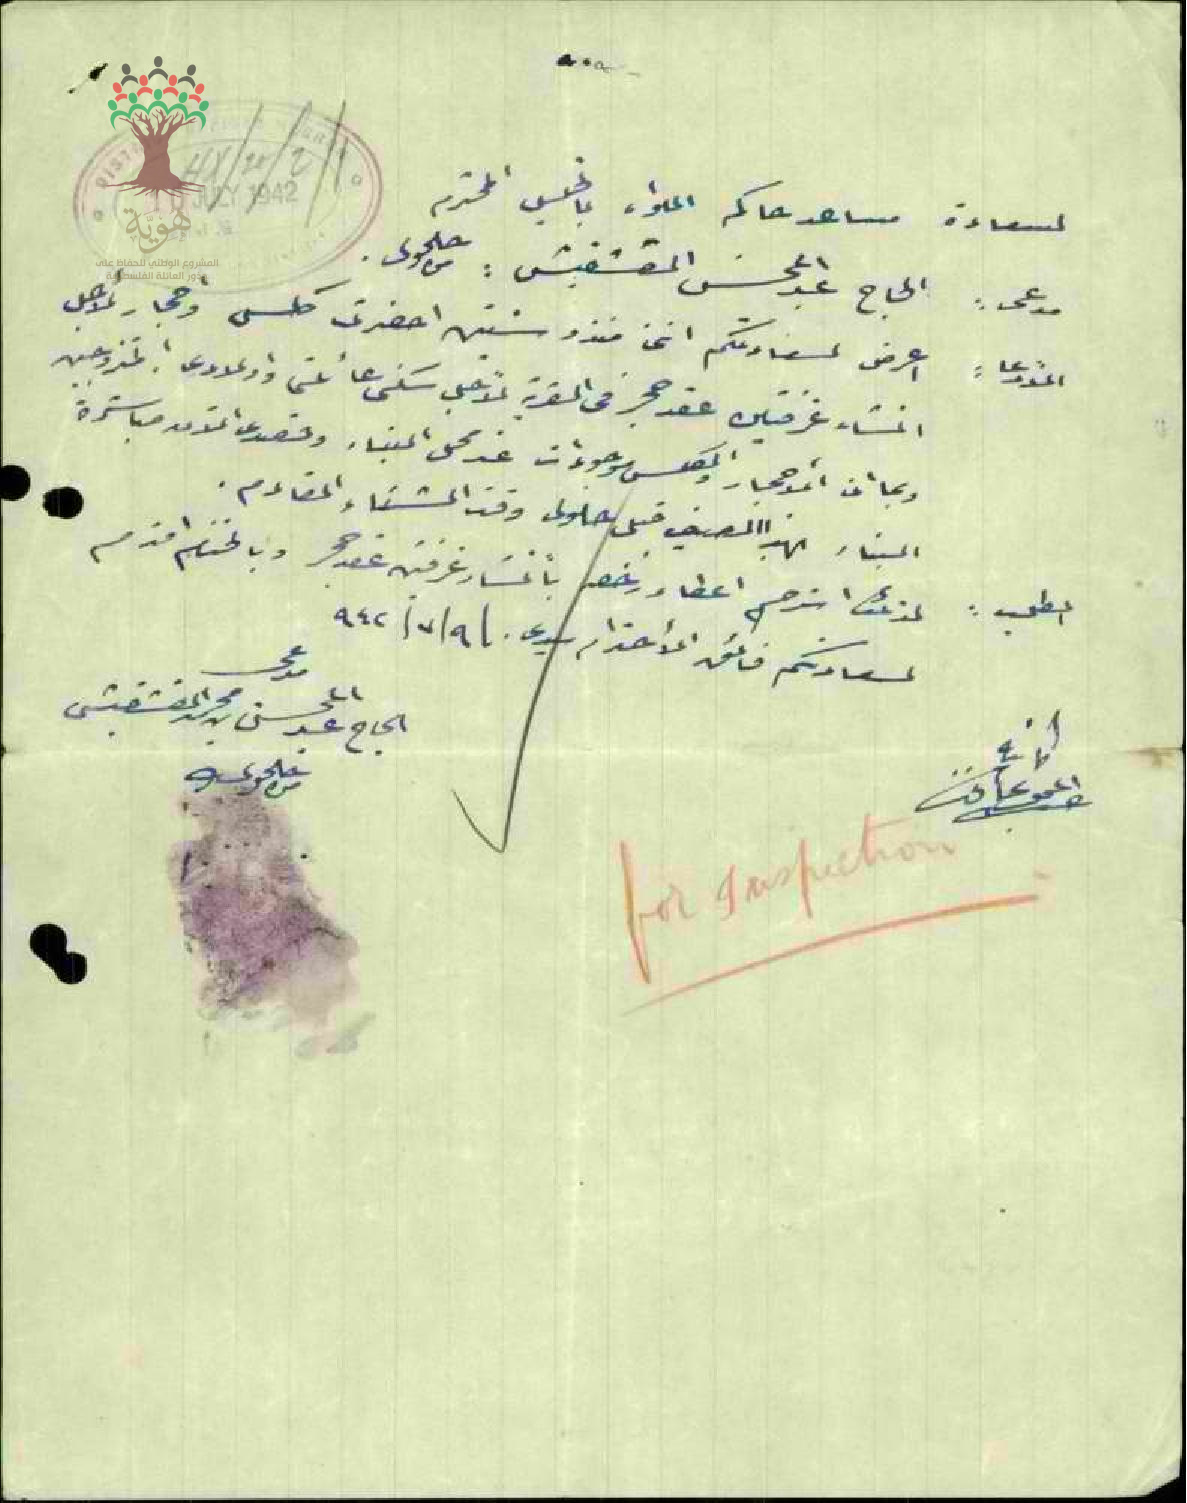 ٥٠٠
DISTRICT
HX/20/2/1
JULY 1942
هويّة
المشروع الوطني للحفاظ على
جذور العائلة الفلسطينية
لسعادة مساعد حاكم اللواء بالخليل المحترم
مدعي : الحاج عبد المحسن القشقيش : من حلحول .
الادعا : اعرض لسعادتكم انني منذ سنتين احضرت كلس واحجار لاجل
انشاء غرفتين عقد حجر في القرية لاجل سكنى عائلتي واولادي المتزوجين
وبما ان الاحجار والكلس موجودات عند محل البناء وقصدي الان مباشرة
البناء بهذا الصيف قبل حلول وقت الشتاء القادم .
الطلب : لذلك استرحم اعطاء رخصة بانشاء غرفتين عقد حجر وبالختام اقدم
لسعادتكم فائق الاحترام سيدي . ٩٤٢/٧/٩
مدعي
الحاج عبد المحسن القشقيش
من حلحول
for Inspection